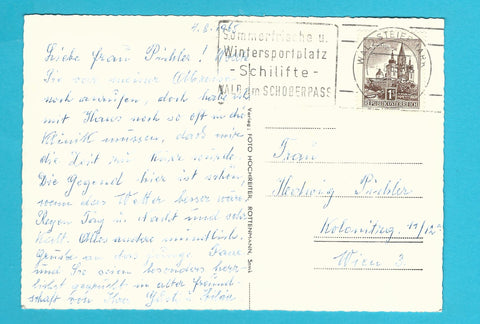 4.8.1965
Liebe Frau Pichler! Wollte
Sie vor meiner Abreise
noch anrufen, doch hatte ich
mit Haus noch so oft in die
Klinik müssen, daß mir
die Zeit zu kurz wurde.
Die Gegend hier ist schön
wenn das Wetter besser wäre
Regen Tag u. Nacht und sehr
kalt. Alles andre mündlich.
Grüße an das junge Paar
und Sie seien besonders herz-
lichst gegrüßt in alter Freund-
schaft von Ihrer
Sommerfrische u.
Wintersportplatz
- Schilifte -
WALD am SCHOBERPASS
WALD, STEIERMARK
REPUBLIK ÖSTERREICH
Verlag: FOTO HOCHREITER, ROTTENMANN, Stmk.
Frau
Hedwig Pichler
Kolonitzg. 11/12
Wien 3.